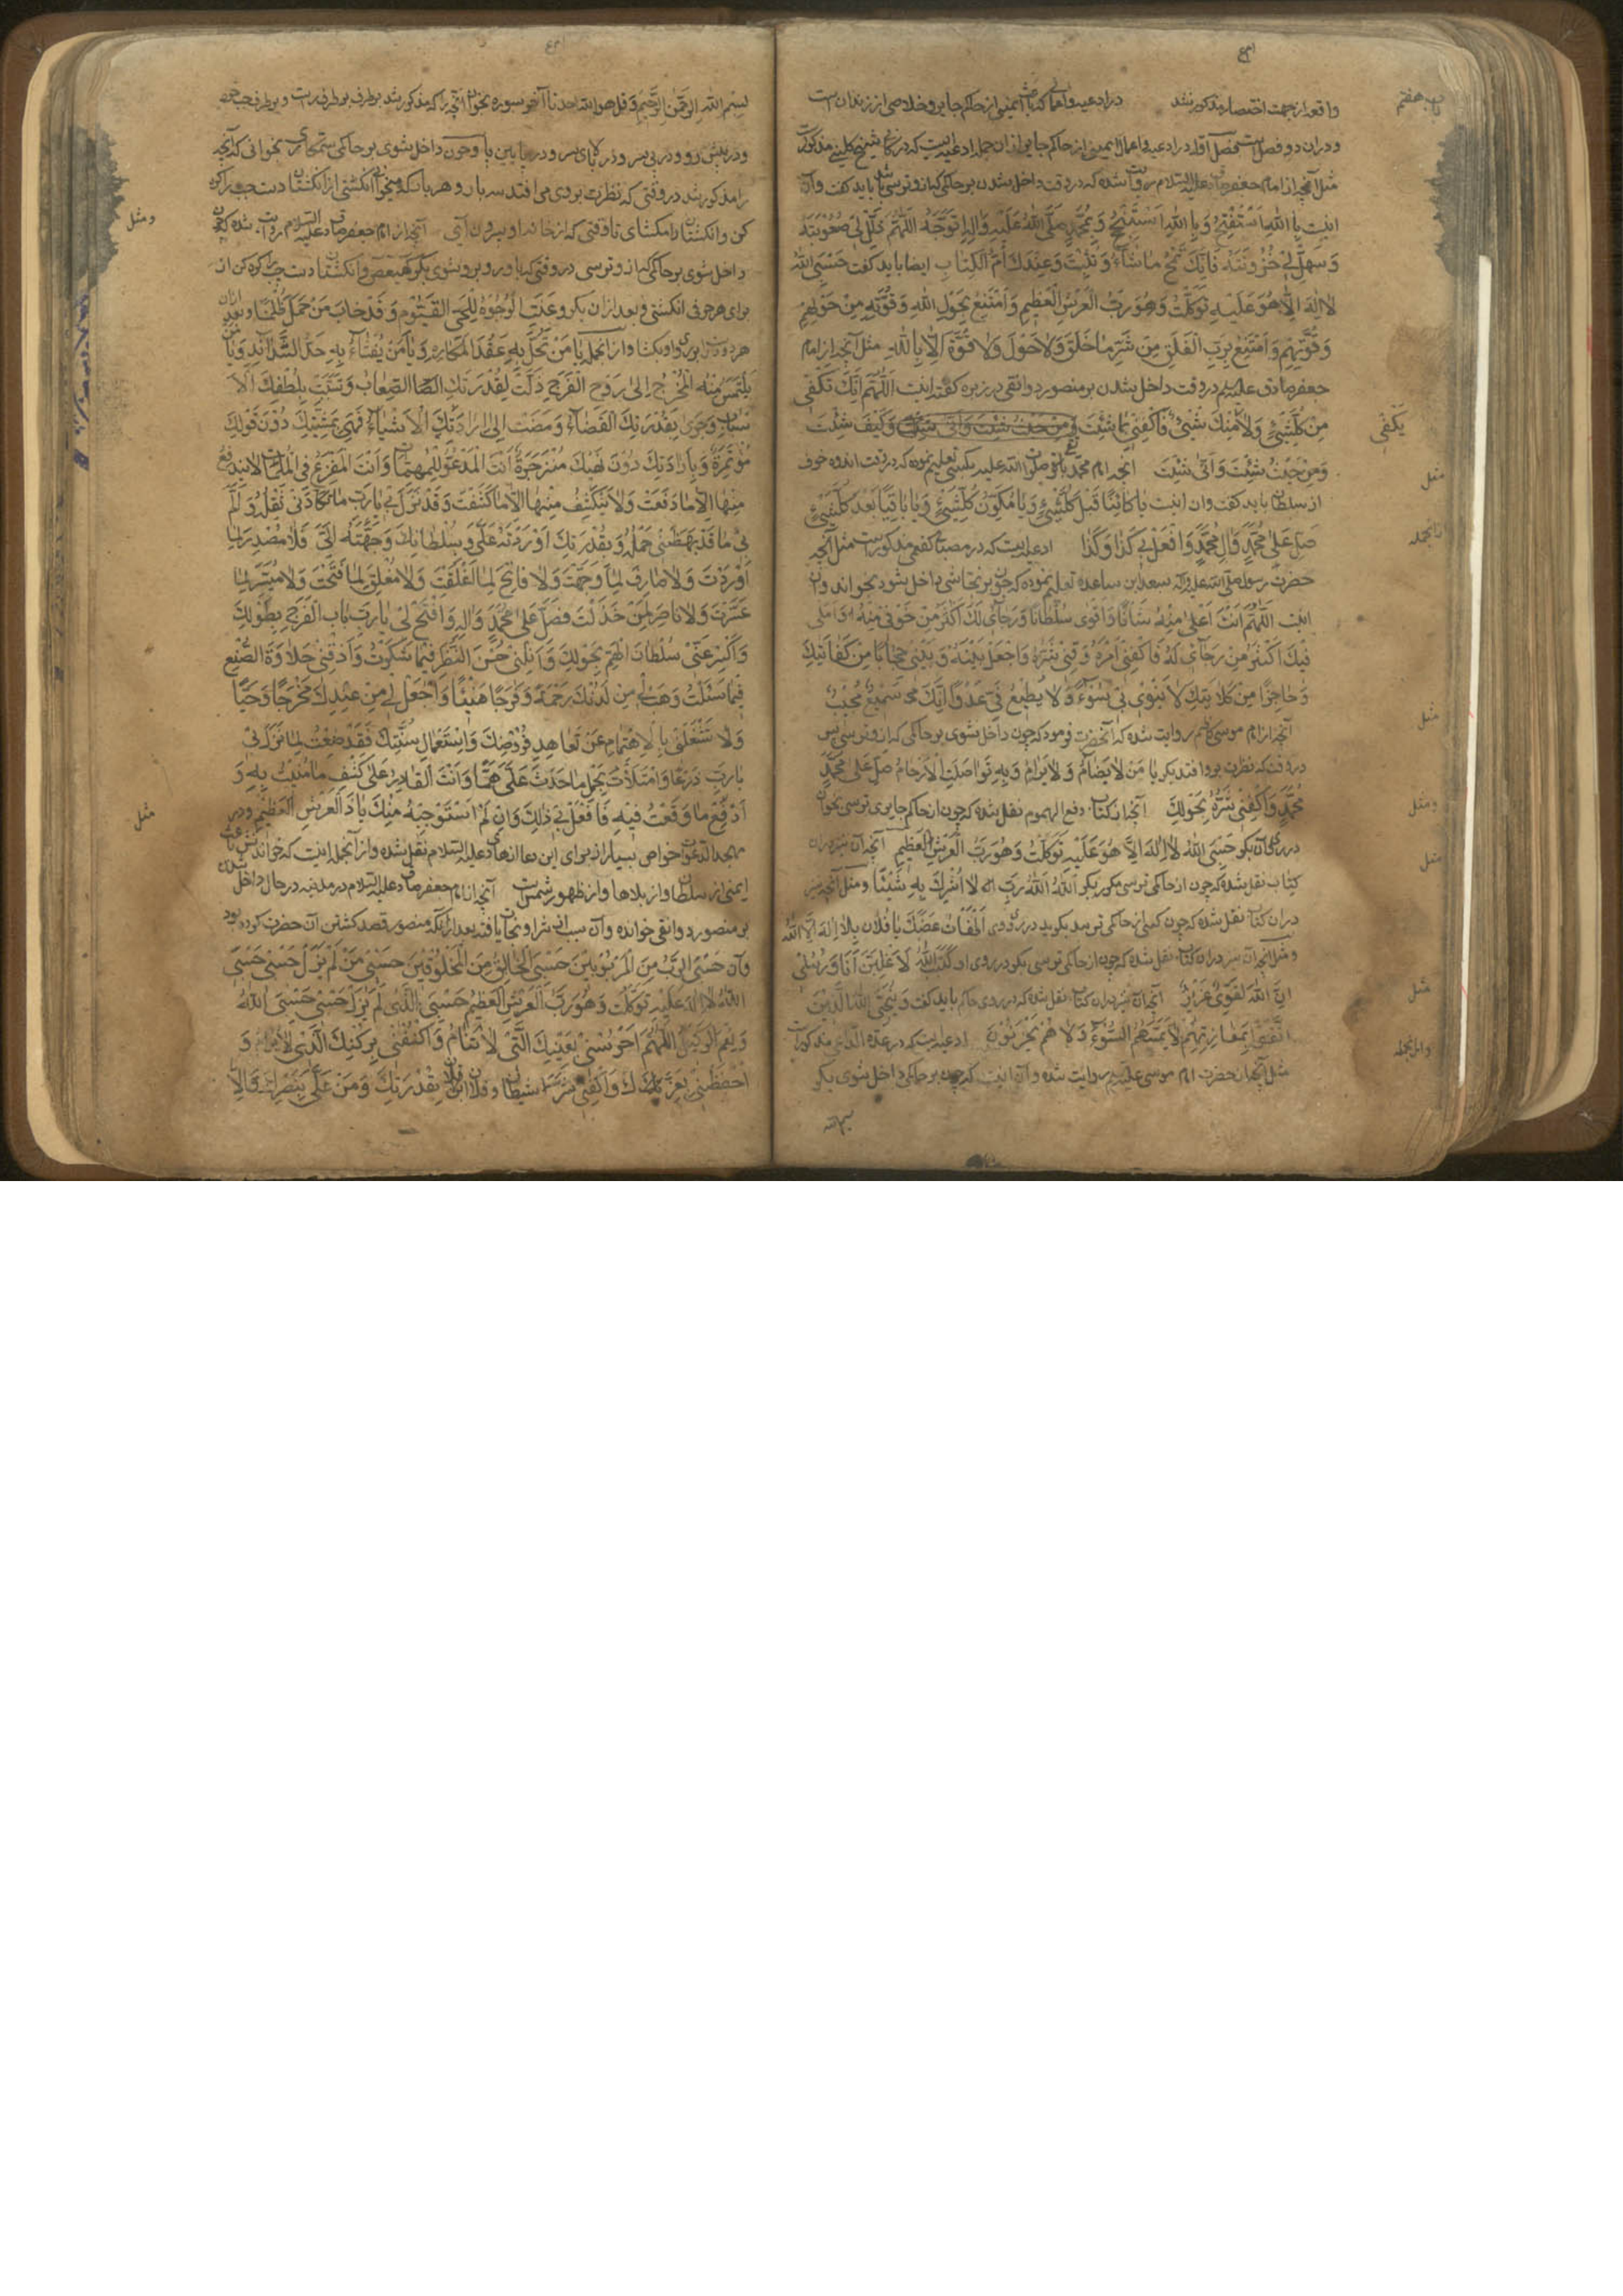 باب هفتم
واقعه از جهت اختصار مذکور نشد در ادعیه و اعمالی که باعث ایمنی از حاکم جابر و خلاصی از زندان است
و در ان دو فصل است فصل اول در ادعیه و اعمال ایمنی از حاکم جابر از ان جمله ادعیه ایست که در کتاب شیخ کلینی مذکور است
مثل آنچه از امام جعفر صادق علیه السلام روایت شده که در وقت داخل شدن بر حاکمی که از و ترسی باید کفت و آن
اینست بِاللهِ اَسْتَفْتِحُ وَ بِاللهِ اَسْتَنْجِحُ وَ بِمُحَمَّدٍ صَلَّی اللهُ عَلَیْهِ وَالِهِ اَتَوَجَّهُ اَللّهُمَّ ذَلِّلْ لی صُعُوبَتَهُ
وَ سَهِّلْ لی حُزُونَتَهُ فَاِنَّكَ تَمْحُو مَا تَشَاءُ وَ تُثْبِتُ وَعِنْدَكَ اُمُّ الْكِتَابِ ایضا باید کفت حَسْبِیَ اللهُ
لا اِلهَ اِلاّ هُوَ عَلَیْهِ تَوَكَّلْتُ وَ هُوَ رَبُّ الْعَرْشِ الْعَظیمِ وَ اَمْتَنِعُ بِحَوْلِ اللهِ وَ قُوَّتِهِ مِنْ حَوْلِهِمْ
وَ قُوَّتِهِمْ وَ اَمْتَنِعُ بِرَبِّ الْفَلَقِ مِنْ شَرِّ مَا خَلَقَ وَلا حَوْلَ وَلا قُوَّةَ اِلاّ بِاللهِ مثل آنچه از امام
جعفر صادق علیه السلام در وقت داخل شدن بر منصور دوانقی در ربذه کفته اینست اَللّهُمَّ اِنَّكَ تَكْفی
مِنْ كُلِّ شَیْءٍ وَلا یَكْفی مِنْكَ شَیْءٌ فَاكْفِنی بِمَا شِئْتَ وَكَیْفَ شِئْتَ
وَ مِنْ حَیْثُ شِئْتَ وَ اَنّی شِئْتَ آنچه امام محمد باقر صلوات الله علیه بکسی تعلیم نموده که در وقت اندوه خوف
از سلطان باید کفت و ان اینست یا كائِنًا قَبْلَ كُلِّ شَیْءٍ وَ یا مُكَوِّنَ كُلِّ شَیْءٍ وَ یا باقِیًا بَعْدَ كُلِّ شَیْءٍ
صَلِّ عَلی مُحَمَّدٍ وَ الِ مُحَمَّدٍ وَ افْعَلْ بی كَذَا وَ كَذَا ادعیه ایست که در مصباح کفعمی مذکور است مثل آنچه
حضرت رسول صلی الله علیه و آله تعلیم نموده که چون بر نجاشی داخل شود بخواند و ان
اینست اَللّهُمَّ اَنْتَ اَعْلی مِنْهُ شَأنًا وَ اَقْوی سُلْطَانًا وَ رَجَای لَكَ اَكْثَرُ مِنْ خَوْفی مِنْهُ وَ اَمَلی
فیكَ اَكْثَرُ مِنْ رَجَآی لَهُ فَاكْفِنی اَمْرَهُ وَ قِنی شَرَّهُ وَ اجْعَلْ بَیْنَهُ وَ بَیْنی حِجَابًا مِنْ كِفَایَتِكَ
وَ حَاجِزًا مِنْ كَلایَتِكَ لا یَنْوی بی بِسُوءٍ وَلا یُطْمِعُ فِیَّ عَدُوًّا اِنَّكَ سَمیعٌ مُجیبٌ
آنچه از امام موسی کاظم روایت شده که آنحضرت فرمود که چون داخل شوی بر حاکمی که از و ترسی پس
در وقت که نظرت برو افتد بکو یا مَنْ لا یُضَامُ وَلا یُرَامُ وَ بِهِ تَوَاصَلَتِ الاَرْحَامُ صَلِّ عَلی مُحَمَّدٍ
مُحَمَّدٍ وَ اكْفِنی شَرَّهُ بِحَوْلِكَ آنچه از کتاب دفع الهموم نقل شده که چون از حاکم جابری ترسی بخوان
در روی آن بکو حَسْبِیَ اللهُ لا اِلهَ اِلاّ هُوَ عَلَیْهِ تَوَكَّلْتُ وَ هُوَ رَبُّ الْعَرْشِ الْعَظیمِ آنچه آن نیز در ان
کتاب نقل شده که چون از حاکمی ترسی مکرر بکو اَللهُ اَللهُ رَبّی لا اُشْرِكُ بِهِ شَیْئًا و مثل آنچه نیز
در ان کتاب نقل شده که چون کسی از حاکمی ترسد بکوید در روی بِلا اِلهَ اِلاَّ اللهُ
و مثل آنچه آن نیز در ان کتاب نقل شده که چون از حاکمی ترسی بکو در روی او كَتَبَ اللهُ لاَغْلِبَنَّ اَنَا وَ رُسُلی
اِنَّ اللهَ لَقَوِیٌّ عَزیزٌ آنچه آن نیز در ان کتاب نقل شده که در روی حاکم باید کفت وَ یُنَجِّی اللهُ الَّذینَ
اتَّقَوْا بِمَفَازَتِهِمْ لا یَمَسُّهُمُ السُّوءُ وَلا هُمْ یَحْزَنُونَ ادعیه ایست که در عدة الداعی مذکور است
مثل آنچه از حضرت امام موسی علیه السلام روایت شده و آن اینست که چون بر حاکمی داخل شوی بکو
بسم الله
یَكْفی
مثل
ازانجمله
مثل
ومثل
مثل
مثل
وازانجمله
بِسْمِ اللهِ الرَّحْمنِ الرَّحیمِ وَ قل هو الله احد تا آخر سوره بخوان آنچه را که مذکور شد بر طرف راست و بر طرف چپ خود
و در پیش رو و در پس سر و در بالای سر و در پایین پا و چون داخل شوی بر حاکمی ستمکاری بخوانی که آنچه
را مذکور شد در وقتی که نظرت بر وی می افتد سه بار و هر بار که میخوانی انکشتی از انکشتان دست چپ را کره
کن و انکشتان را مکشای تا وقتی که از خانه او بیرون آیی آنچه از امام جعفر صادق علیه السلام روایت شده که چون
داخل شوی بر حاکمی که از و ترسی در وقتی که با و رو برو شوی بکو کهیعص و انکشتان دست چپ را کره کن از
برای هر حرفی انکشتی و بعد از ان بکو وَعَنَتِ الْوُجُوهُ لِلْحَیِّ الْقَیُّومِ وَ قَدْ خَابَ مَنْ حَمَلَ ظُلْمًا و بعد از ان
در روی او بکشا و از انجمله یَا مَنْ تُحَلُّ بِهِ عُقَدُ الْمَكَارِهِ وَ یَا مَنْ یُفْثَأُ بِهِ حَدُّ الشَّدَآئِدِ وَ یَا مَنْ
یُلْتَمَسُ مِنْهُ الْمَخْرَجُ اِلی رَوْحِ الْفَرَجِ ذَلَّتْ لِقُدْرَتِكَ الصِّعَابُ وَ تَسَبَّبَتْ بِلُطْفِكَ الاَ
سْبَابُ وَ جَری بِقُدْرَتِكَ الْقَضَآءُ وَ مَضَتْ اِلی اِرَادَتِكَ الاَشْیَآءُ فَهِیَ بِمَشِیَّتِكَ دُونَ قَوْلِكَ
مُؤْتَمِرَةٌ وَ بِاِرَادَتِكَ دُونَ نَهْیِكَ مُنْزَجِرَةٌ اَنْتَ الْمَدْعُوُّ لِلْمُهِمَّاتِ وَ اَنْتَ الْمَفْزَعُ فِی الْمُلِمَّاتِ لا یَنْدَفِعُ
مِنْهَا اِلاّ مَا دَفَعْتَ وَلا یَنْكَشِفُ مِنْهَا اِلاّ مَا كَشَفْتَ وَ قَدْ نَزَلَ بی یَا رَبِّ مَا تَكَأّدَنی ثِقْلُهُ وَ اَلَمَّ
بی مَا قَدْ بَهَظَنی حَمْلُهُ وَ بِقُدْرَتِكَ اَوْرَدْتَهُ عَلَیَّ وَ بِسُلْطَانِكَ وَجَّهْتَهُ اِلَیَّ فَلا مُصْدِرَ لِمَا
اَوْرَدْتَ وَلا صَارِفَ لِمَا وَجَّهْتَ وَلا فَاتِحَ لِمَا اَغْلَقْتَ وَلا مُغْلِقَ لِمَا فَتَحْتَ وَلا مُیَسِّرَ لِمَا
عَسَّرْتَ وَلا نَاصِرَ لِمَنْ خَذَلْتَ فَصَلِّ عَلی مُحَمَّدٍ وَ الِهِ وَ افْتَحْ لی یَا رَبِّ بَابَ الْفَرَجِ بِطَوْلِكَ
وَ اكْسِرْ عَنّی سُلْطَانَ الْهَمِّ بِحَوْلِكَ وَ اَنِلْنی حُسْنَ النَّظَرِ فیمَا شَكَوْتُ وَ اَذِقْنی حَلاوَةَ الصُّنْعِ
فیمَا سَئَلْتُ وَ هَبْ لی مِنْ لَدُنْكَ رَحْمَةً وَ فَرَجًا هَنیئًا وَ اجْعَلْ لی مِنْ عِنْدِكَ مَخْرَجًا وَحِیًّا
وَلا تَشْغَلْنی بِالاِهْتِمَامِ عَنْ تَعَاهُدِ فُرُوضِكَ وَ اسْتِعْمَالِ سُنَّتِكَ فَقَدْ ضِقْتُ لِمَا نَزَلَ بی
یَا رَبِّ ذَرْعًا وَ امْتَلأتُ بِحَمْلِ مَا حَدَثَ عَلَیَّ هَمًّا وَ اَنْتَ الْقَادِرُ عَلی كَشْفِ مَا مُنیتُ بِهِ وَ
دَفْعِ مَا وَقَعْتُ فیهِ فَافْعَلْ بی ذلِكَ وَ اِنْ لَمْ اَسْتَوْجِبْهُ مِنْكَ یَا ذَا الْعَرْشِ الْعَظیمِ و در
مهج الدعوات خواص بسیار از برای این دعا از هادی علیه السلام نقل شده و از آنجمله اینست که خواندنش باعث
ایمنی از سلطان و از بلاها و از ظهور شماتت آنچه از امام جعفر صادق علیه السلام در مدینه در حال داخل شدن
بر منصور دوانقی خوانده و آن سبب از شر او نجات یافته بعد از آنکه منصور قصد کشتن آن حضرت کرده بود
و آن حَسْبِیَ الرَّبُّ مِنَ الْمَرْبُوبینَ حَسْبِیَ الْخَالِقُ مِنَ الْمَخْلُوقینَ حَسْبی مَنْ لَمْ یَزَلْ حَسْبی حَسْبِیَ
اللهُ لا اِلهَ عَلَیْهِ تَوَكَّلْتُ وَ هُوَ رَبُّ الْعَرْشِ الْعَظیمِ حَسْبِیَ الَّذی لَمْ یَزَلْ حَسْبی حَسْبِیَ اللهُ
وَ نِعْمَ الْوَكیلُ اَللّهُمَّ احْرُسْنی بِعَیْنِكَ الَّتی لا تَنَامُ وَ اكْنُفْنی بِرُكْنِكَ الَّذی لا یُرَامُ وَ
احْفَظْنی بِعِزِّكَ وَ اكْفِنی شَرَّ شیطان و فلان ابن فلان بِقُدْرَتِكَ وَ مُنَّ عَلَیَّ بِنَصْرِكَ وَ اِلاّ
ومثل
مثل